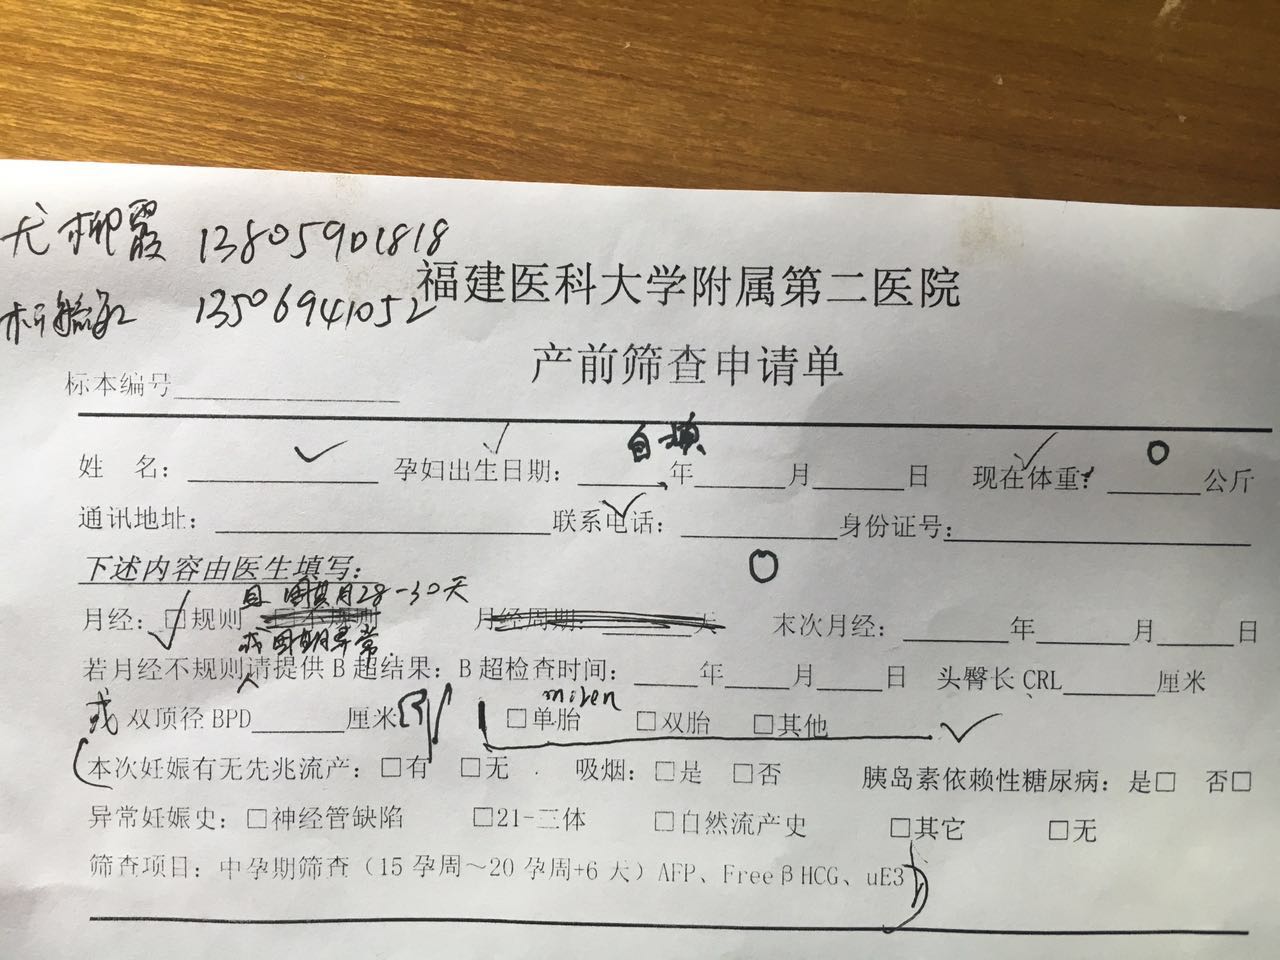 尤柳霞 13805901818
13506941052
福建医科大学附属第二医院
产前筛查申请单
标本编号
自填
姓 名： 孕妇出生日期： 年 月 日 现在体重： 公斤
通讯地址： 联系电话： 身份证号：
下述内容由医生填写：
且 周期28-30天
月经：□规则 □不规则 月经周期： 天 末次月经： 年 月 日
或周期异常
若月经不规则请提供B超结果：B超检查时间： 年 月 日 头臀长CRL 厘米
或 双顶径BPD 厘米 □单胎 □双胎 □其他
本次妊娠有无先兆流产：□有 □无 吸烟：□是 □否 胰岛素依赖性糖尿病：是□ 否□
异常妊娠史：□神经管缺陷 □21-三体 □自然流产史 □其它 □无
筛查项目：中孕期筛查（15孕周～20孕周+6天）AFP、FreeβHCG、uE3